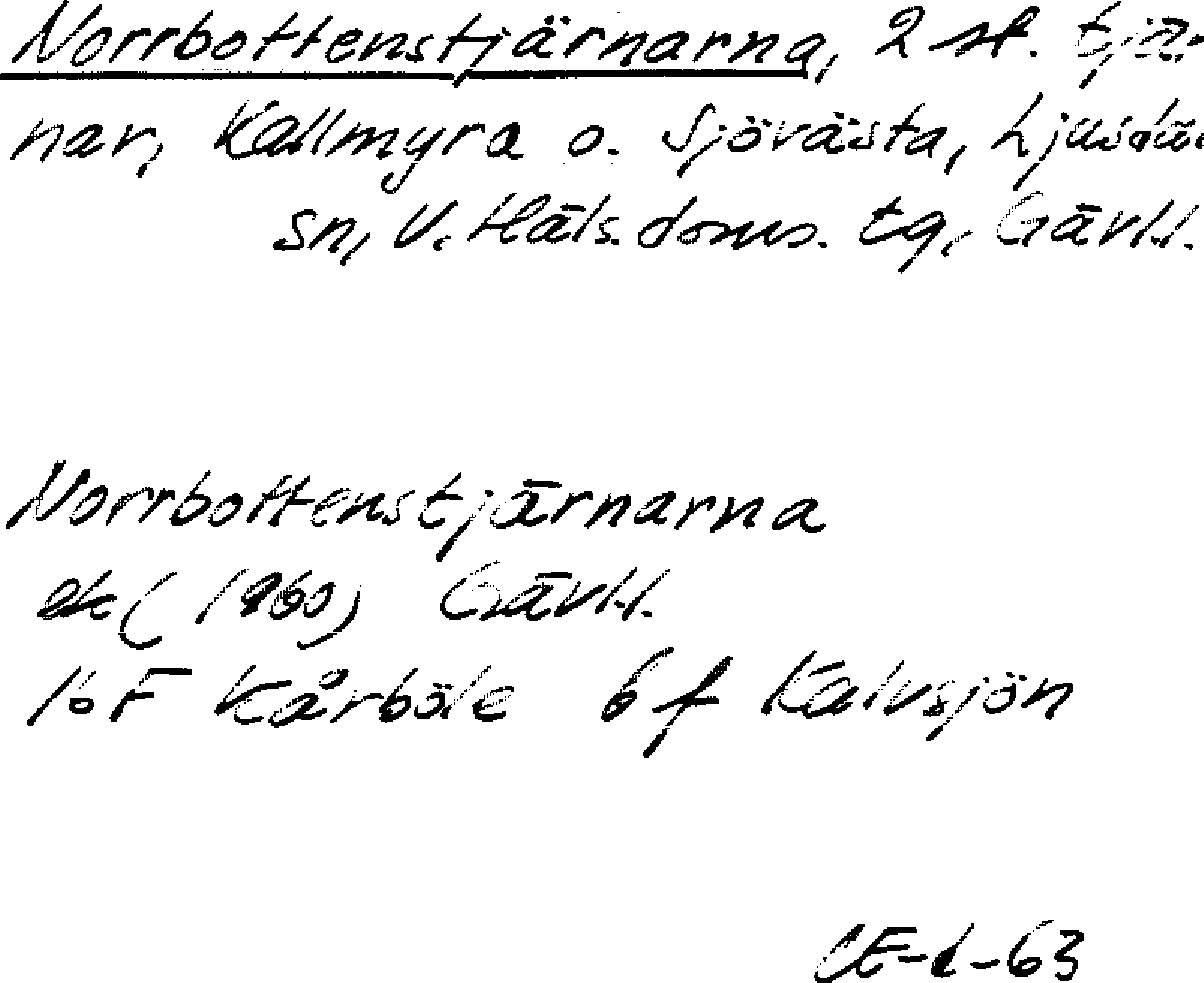 Norrbottenstjärnarna, 2 st. tjär-
nar, Kallmyra o. Sjövästa, Ljusdals
sn, V. Häls. doms. tg, Gävl.l.
Norrbottenstjärnarna
ek (1960) Gävl.l.
16F Kårböle 6f Kalvsjön
CE-d-63